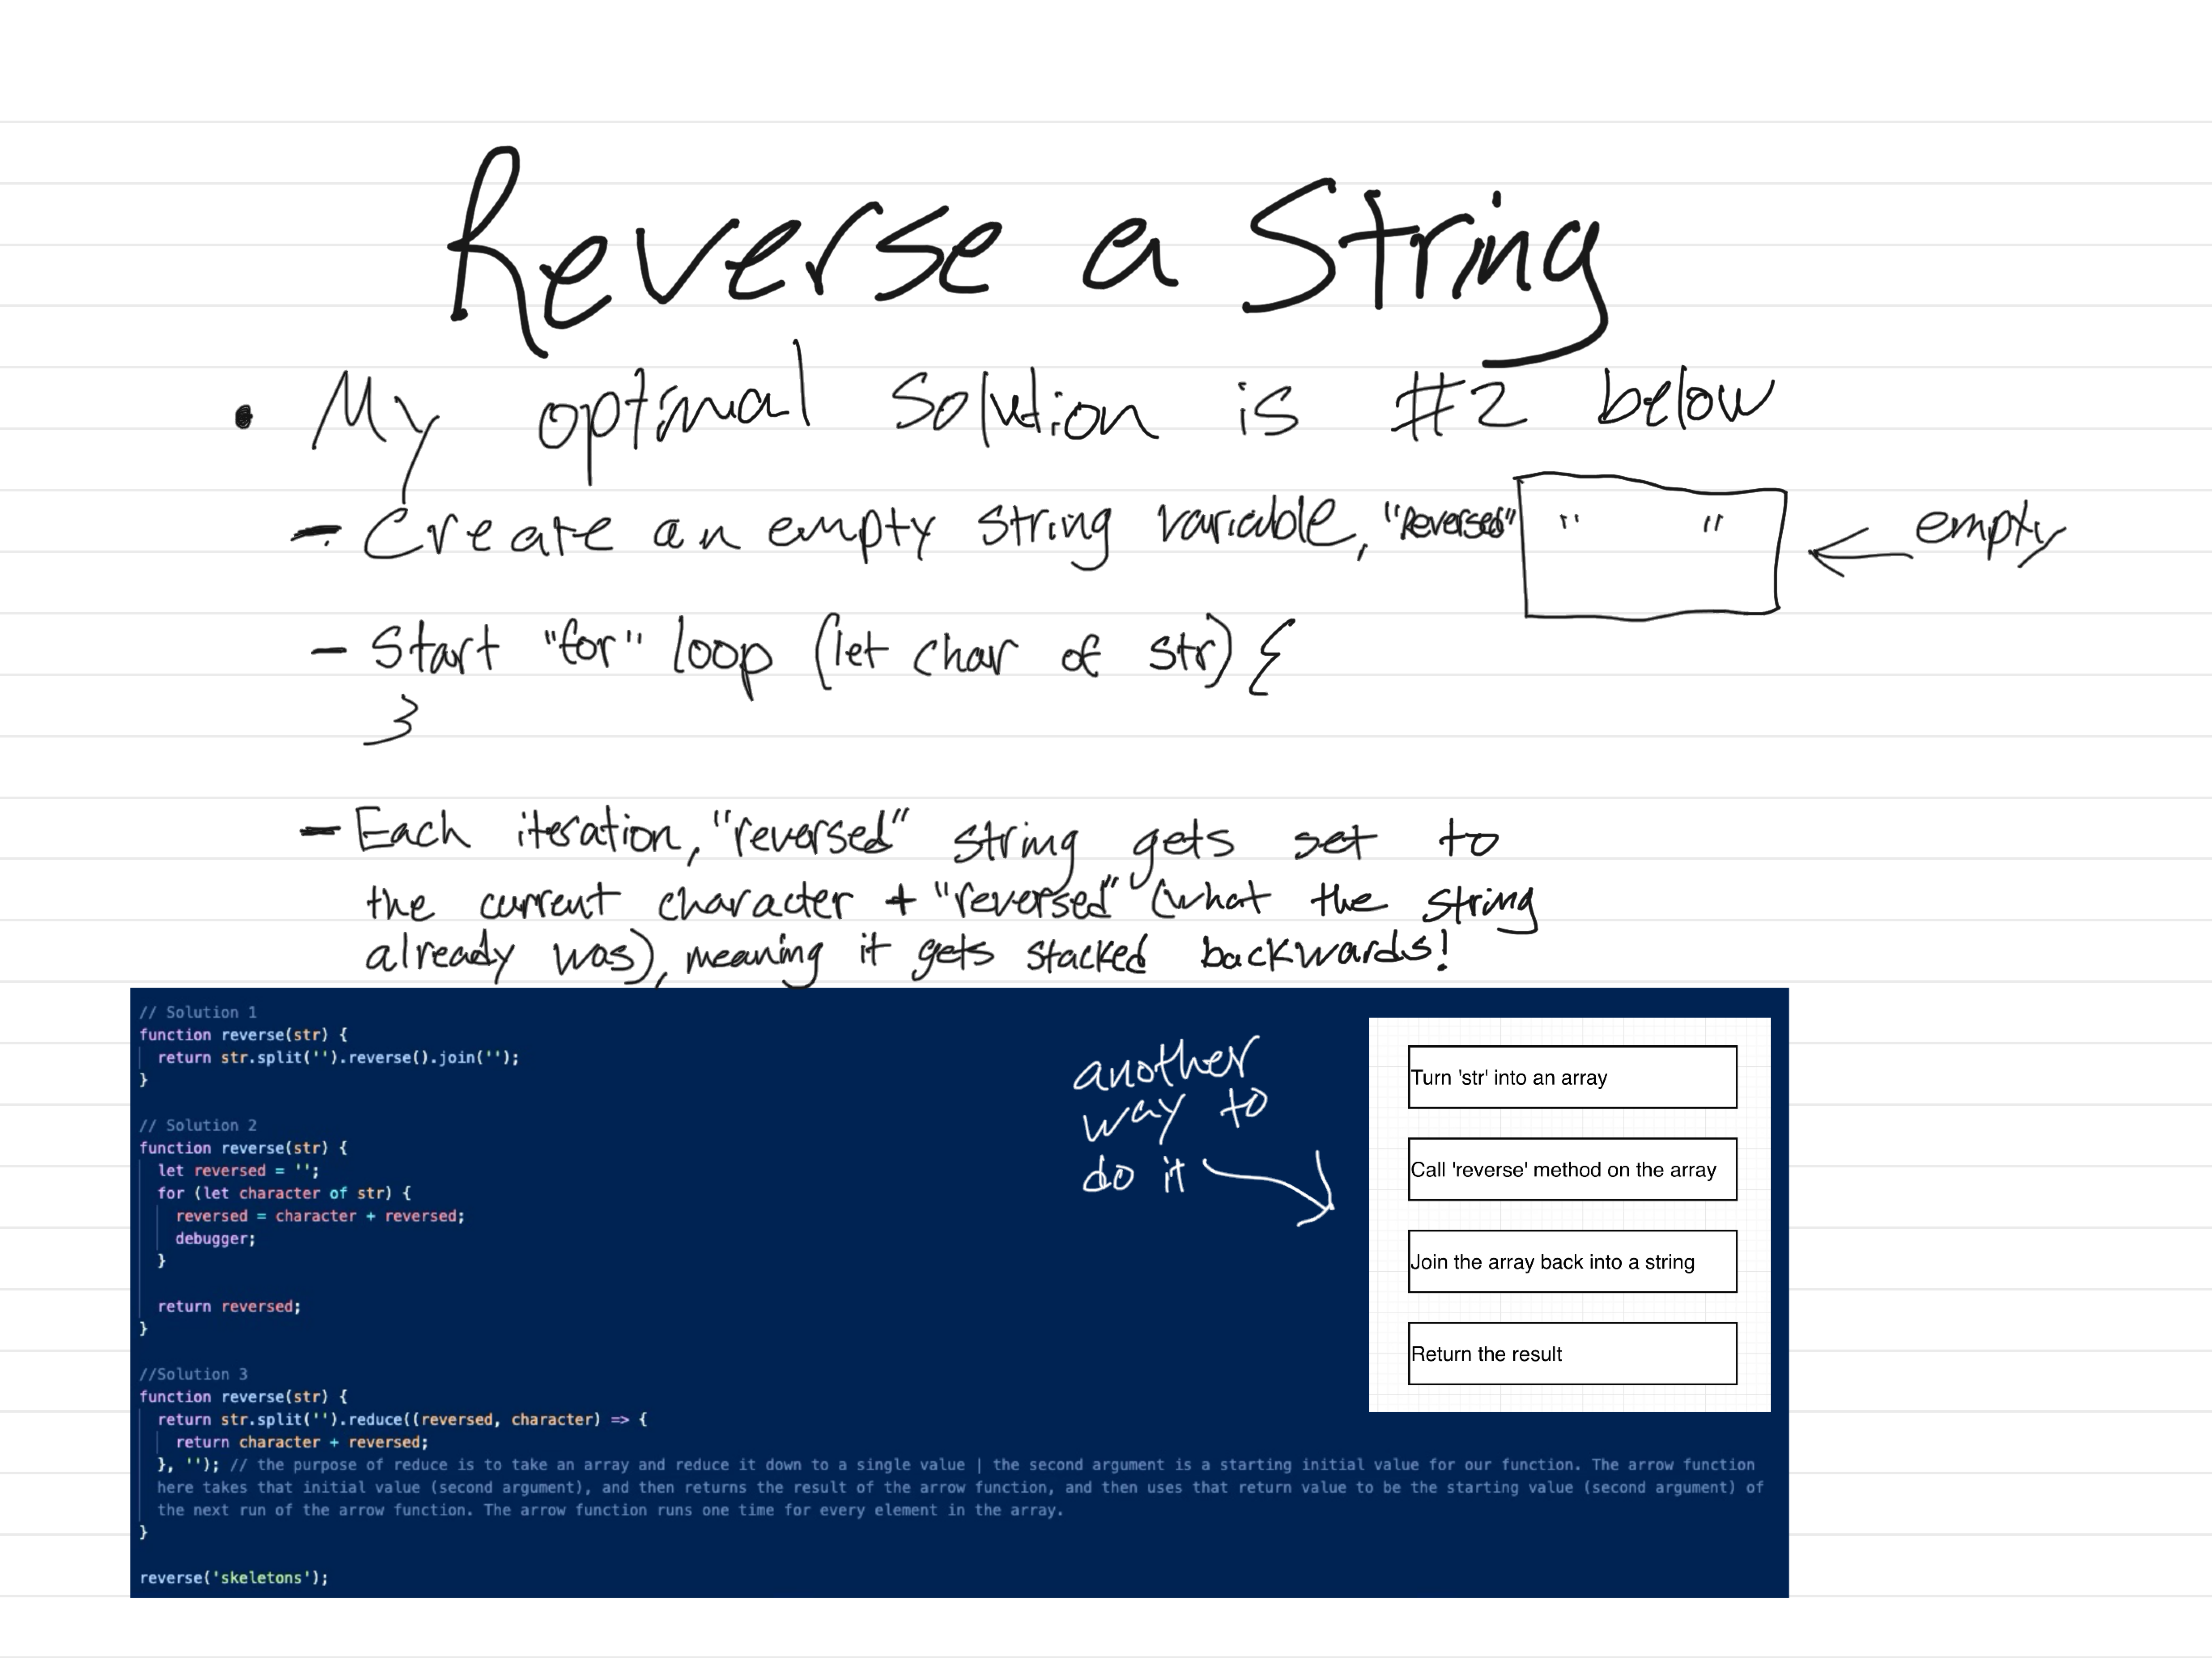 Reverse a String
• My optimal solution is #2 below
- Create an empty string variable, "Reversed" " " ← empty
- Start "for" loop (let char of str) {
}
- Each iteration, "reversed" string gets set to
the current character + "reversed" (what the string
already was), meaning it gets stacked backwards!
// Solution 1
function reverse(str) {
  return str.split('').reverse().join('');
}
// Solution 2
function reverse(str) {
  let reversed = '';
  for (let character of str) {
    reversed = character + reversed;
    debugger;
  }
  return reversed;
}
//Solution 3
function reverse(str) {
  return str.split('').reduce((reversed, character) => {
    return character + reversed;
  }, ''); // the purpose of reduce is to take an array and reduce it down to a single value | the second argument is a starting initial value for our function. The arrow function
  here takes that initial value (second argument), and then returns the result of the arrow function, and then uses that return value to be the starting value (second argument) of
  the next run of the arrow function. The arrow function runs one time for every element in the array.
}
reverse('skeletons');
another
way to
do it
Turn 'str' into an array
Call 'reverse' method on the array
Join the array back into a string
Return the result